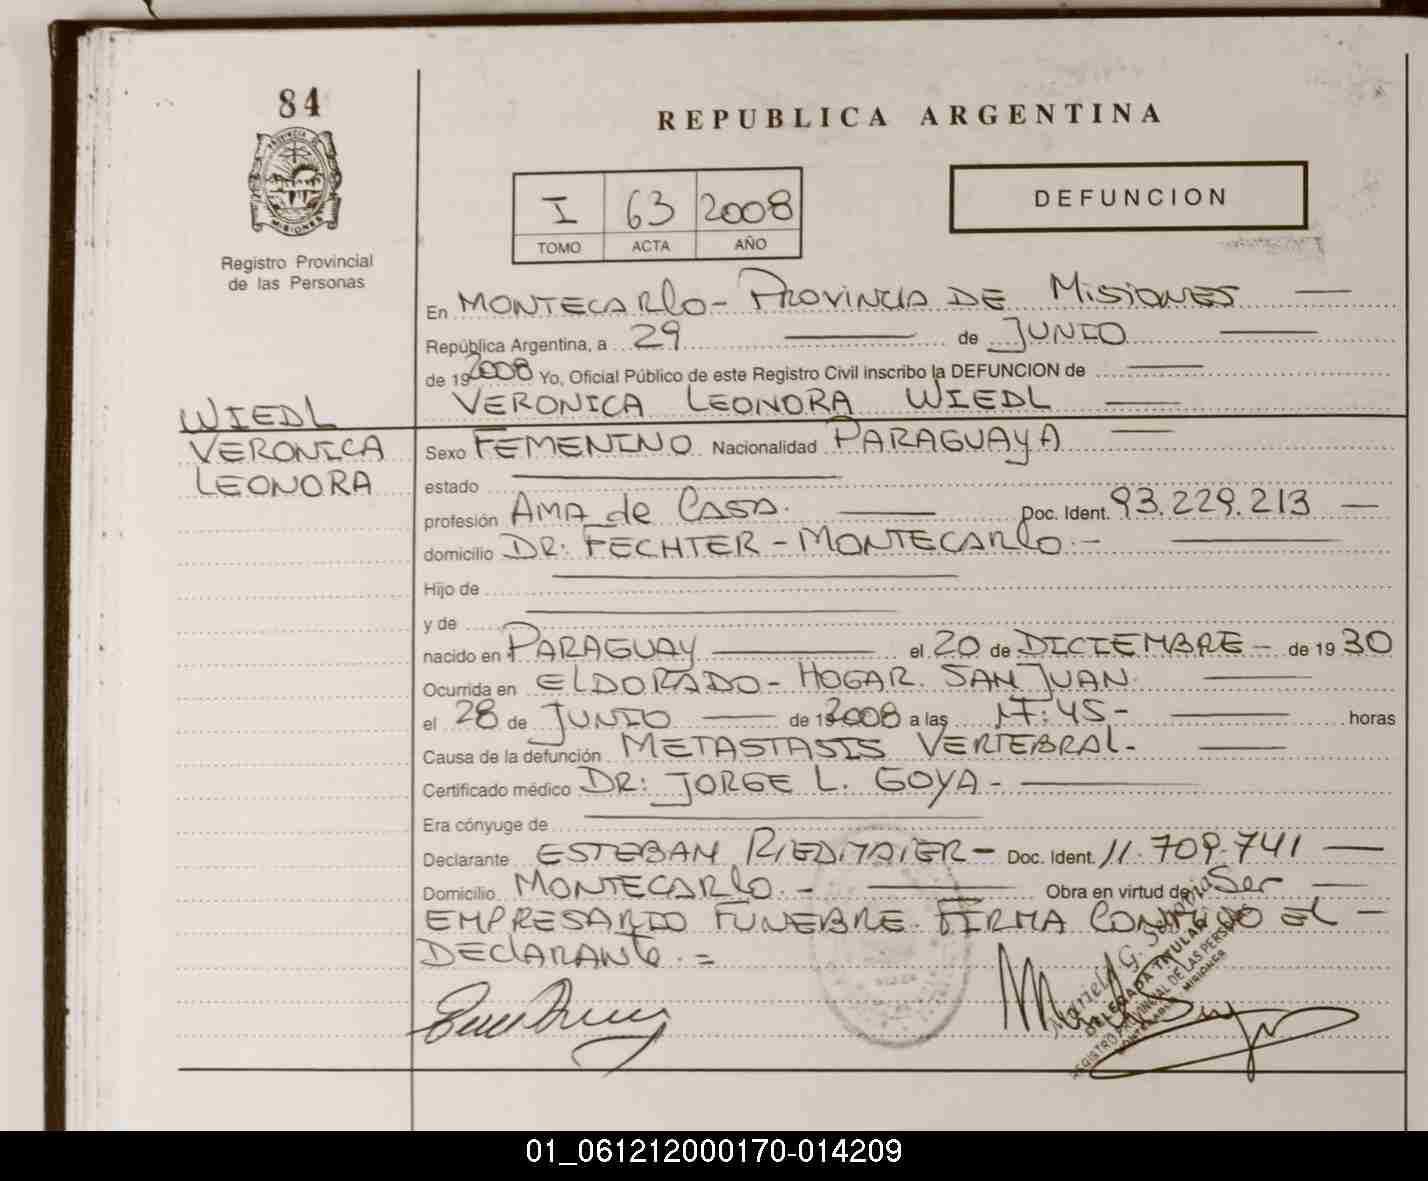 84
PROVINCIA DE
MISIONES
Registro Provincial
de las Personas
REPUBLICA ARGENTINA
I 63 2008
TOMO ACTA AÑO
DEFUNCION
En MONTECARLO - PROVINCIA DE MISIONES
República Argentina, a 29 de JUNIO
de 19 2008 Yo, Oficial Público de este Registro Civil inscribo la DEFUNCION de
VERONICA LEONORA WIEDL
WIEDL
VERONICA
LEONORA
Sexo FEMENINO Nacionalidad PARAGUAYA
estado
profesión AMA de CASA. Doc. Ident. 93.229.213
domicilio DR: FECHTER - MONTECARLO.-
Hijo de
y de
nacido en PARAGUAY el 20 de DICIEMBRE - de 19 30
Ocurrida en ELDORADO - HOGAR. SAN JUAN.
el 28 de JUNIO de 19 2008 a las 17:45- horas
Causa de la defunción METASTASIS VERTEBRAL-
Certificado médico DR: JORGE L. GOYA -
Era cónyuge de
Declarante ESTEBAN RIEDMAIER - Doc. Ident. 11.709.741
Domicilio MONTECARLO.- Obra en virtud de Ser
EMPRESARIO FUNEBRE. FIRMA CONMIGO EL -
DECLARANTE. =
DELEGADA TITULAR
REGISTRO PROVINCIAL DE LAS PERSONAS
MISIONES
01_061212000170-014209